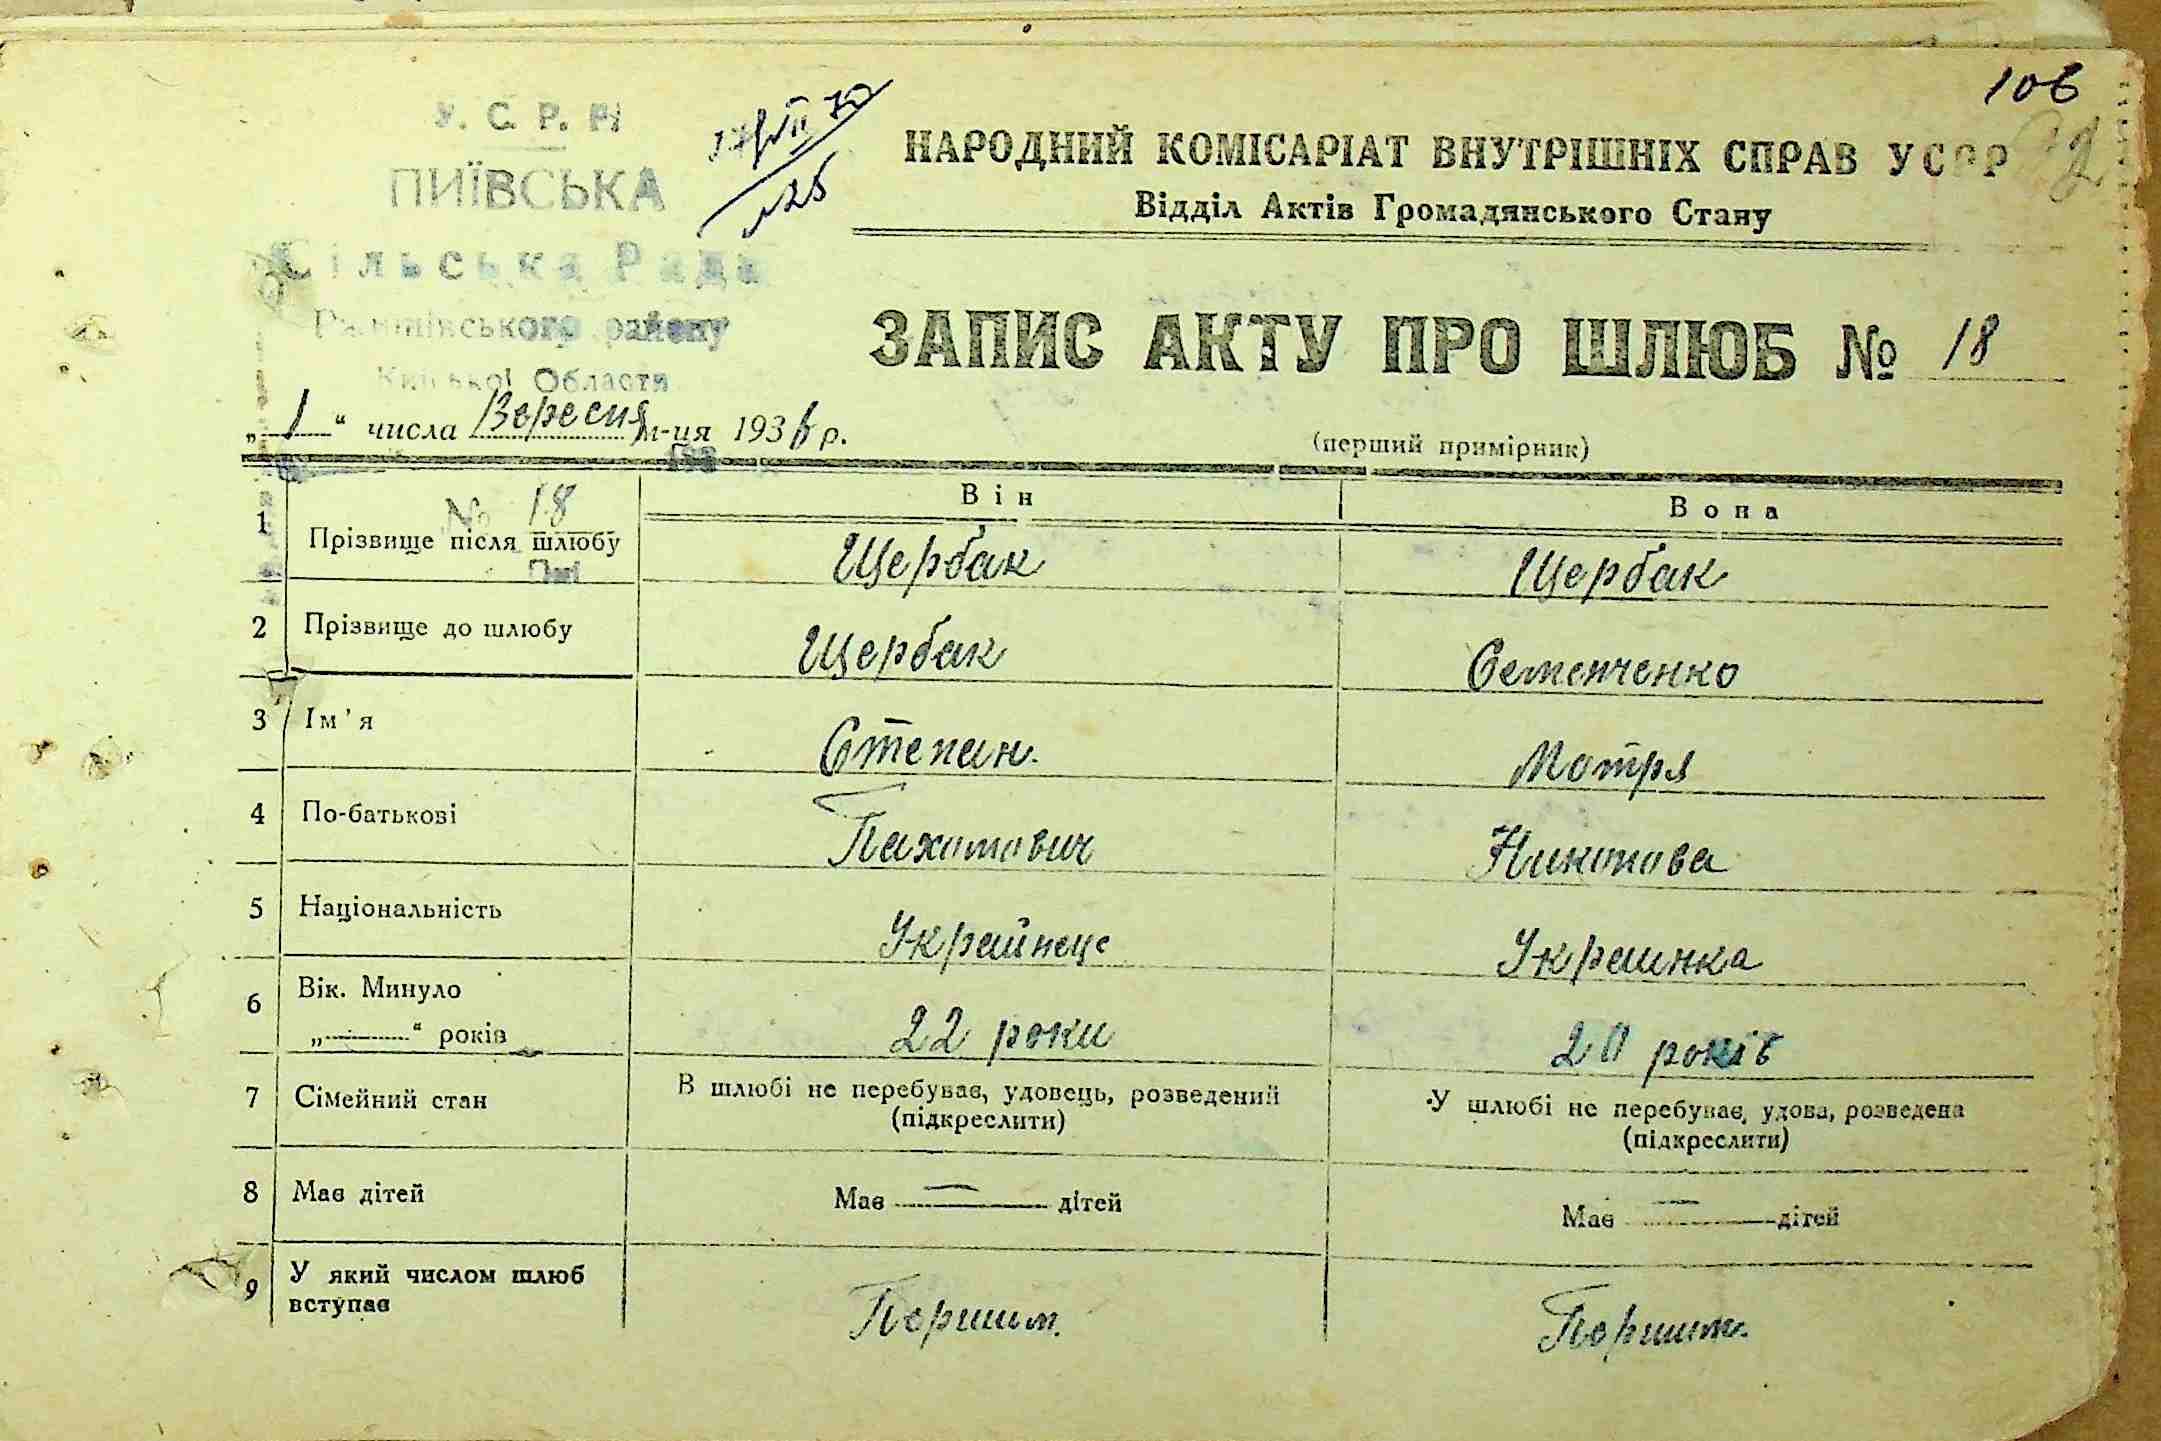 106
У. С. Р. Р.
ПИЇВСЬКА
Сільська Рада
району
Області
НАРОДНИЙ КОМІСАРІАТ ВНУТРІШНІХ СПРАВ УСРР
Відділ Актів Громадянського Стану
ЗАПИС АКТУ ПРО ШЛЮБ № 18
„ 1 “ числа Вересня м-ця 1936 р.
(перший примірник)
№ 18
Він Вона
1 Прізвище після шлюбу Щербак Щербак
2 Прізвище до шлюбу Щербак Семенченко
3 Ім'я Степан. Мотря
4 По-батькові Пахомович Никонова
5 Національність Украйнець Украинка
6 Вік. Минуло
„ “ років 22 роки 20 років
7 Сімейний стан В шлюбі не перебуває, удовець, розведений У шлюбі не перебуває, удова, розведена
(підкреслити) (підкреслити)
8 Має дітей Має — дітей Має — дітей
9 У який числом шлюб
вступає Першим. Першим.